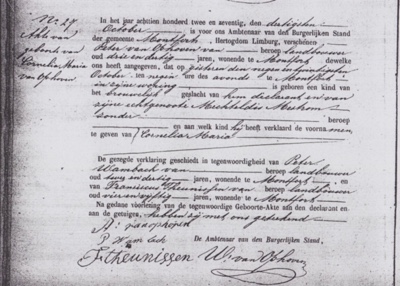 No 27
Akte van
geboorte van
Cornelia Maria
van Ophoven
In het jaar achttien honderd twee en zeventig, den dertigsten
October is voor ons Ambtenaar van den Burgerlijken Stand
der gemeente Montfort, Hertogdom Limburg, verschenen,
Peter van Ophoven van beroep landbouwer
oud drie en dertig jaren, wonende te Montfort dewelke
ons heeft aangegeven, dat op gisteren den negen en twintigsten
October ten negen ure des avonds te Montfort
in zijne woning is geboren een kind van
het vrouwelijk geslacht van hem declarant en van
zijne echtgenoote Mechtildis
zonder
beroep en aan welk kind hij heeft verklaard de voornamen,
te geven van Cornelia Maria
De gezegde verklaring geschiedt in tegenwoordigheid van Peter
Wambach van beroep landbouwer
oud twee en dertig jaren, wonende te Montfort, en
van Franciscus Theunissen van beroep landbouwer
oud vier en vijftig jaren, wonende te Montfort
Na gedane voorlezing van de tegenwoordige Geboorte-Akte aan den declarant en
aan de getuigen, hebben zij met ons geteekend
P van ophoven
P Wambach De Ambtenaar van den Burgerlijken Stand,
F Theunissen W. van Ophoven